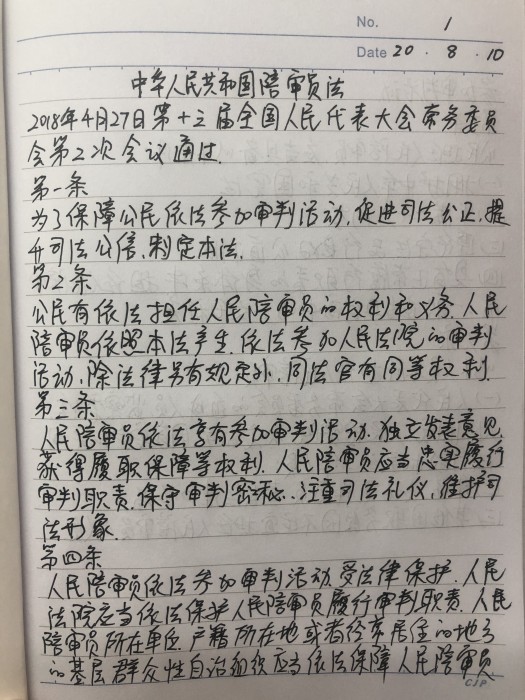 No. 1
Date 20 · 8 · 10
中华人民共和国陪审员法
2018年4月27日第十三届全国人民代表大会常务委员
会第2次会议通过.
第一条
为了保障公民依法参加审判活动,促进司法公正,提
升司法公信,制定本法.
第2条
公民有依法担任人民陪审员的权利和义务.人民
陪审员依照本法产生.依法参加人民法院的审判
活动,除法律另有规定外,同法官有同等权利.
第三条
人民陪审员依法享有参加审判活动.独立发表意见.
获得履职保障等权利.人民陪审员应当忠实履行
审判职责.保守审判密秘.注重司法礼仪,维护司
法形象.
第四条
人民陪审员依法参加审判活动.受法律保护.人民
法院应当依法保护人民陪审员履行审判职责.人民
陪审员所在单位.户籍所在地或者经常居住的地方
的基层群众性自治组织应当依法保障人民陪审员